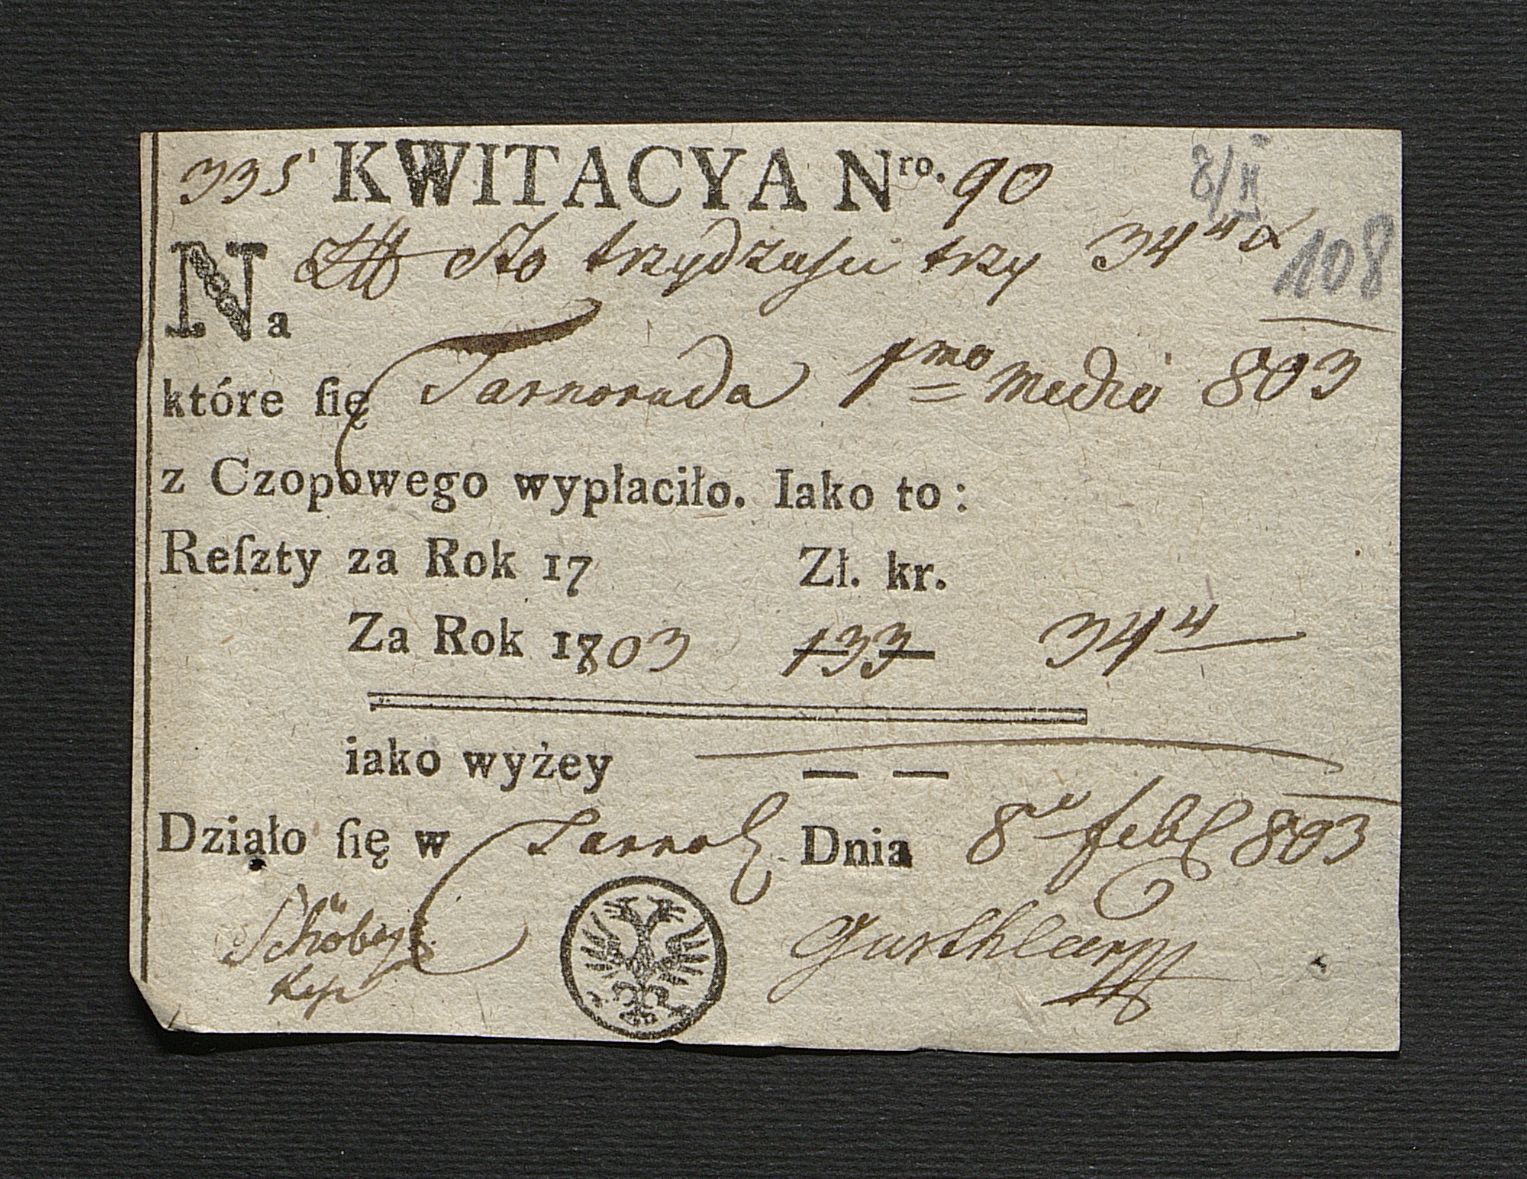 335 KWITACYA Nro. 90
8/II
108
Na Sto trzydziesci trzy 34 4
które ſię Tarnoruda 1mo Medio 803
z Czopowego wypłaciło. Iako to:
Reſzty za Rok 17 Zł. kr.
Za Rok 1803 133 34 4
iako wyżey — —
Działo ſię w Dnia 8 feb 803